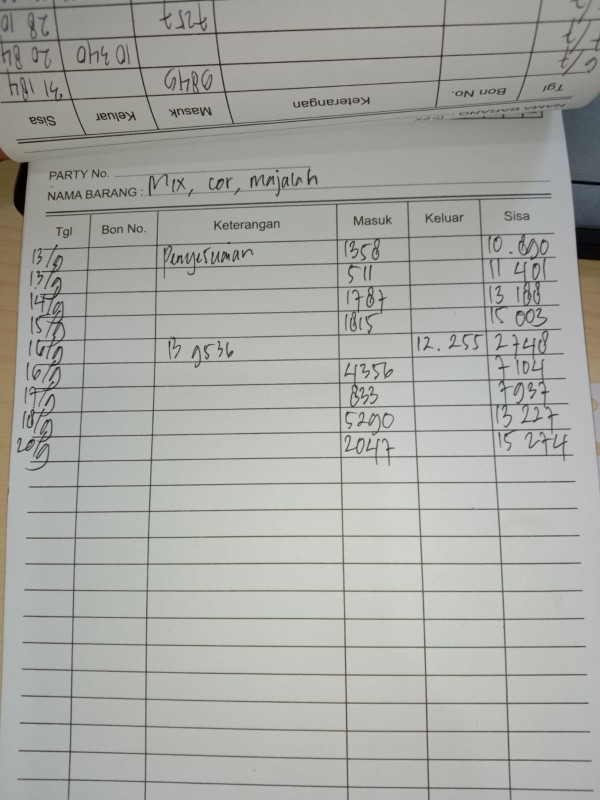 NAMA BARANG :
Tgl Bon No. Keterangan Masuk Keluar Sisa
6/7 9849 31 184
10 340 20 84
7257 28 10
PARTY No.
NAMA BARANG : Mix, cor, majalah
Tgl Bon No. Keterangan Masuk Keluar Sisa
13/9 Penyesuaian 1358 10.890
13/9 511 11 401
14/9 1787 13 188
15/9 1815 15 003
16/9 B 9536 12.255 2748
16/9 4356 7104
17/9 833 7937
18/9 5290 13 227
20/9 2047 15 274